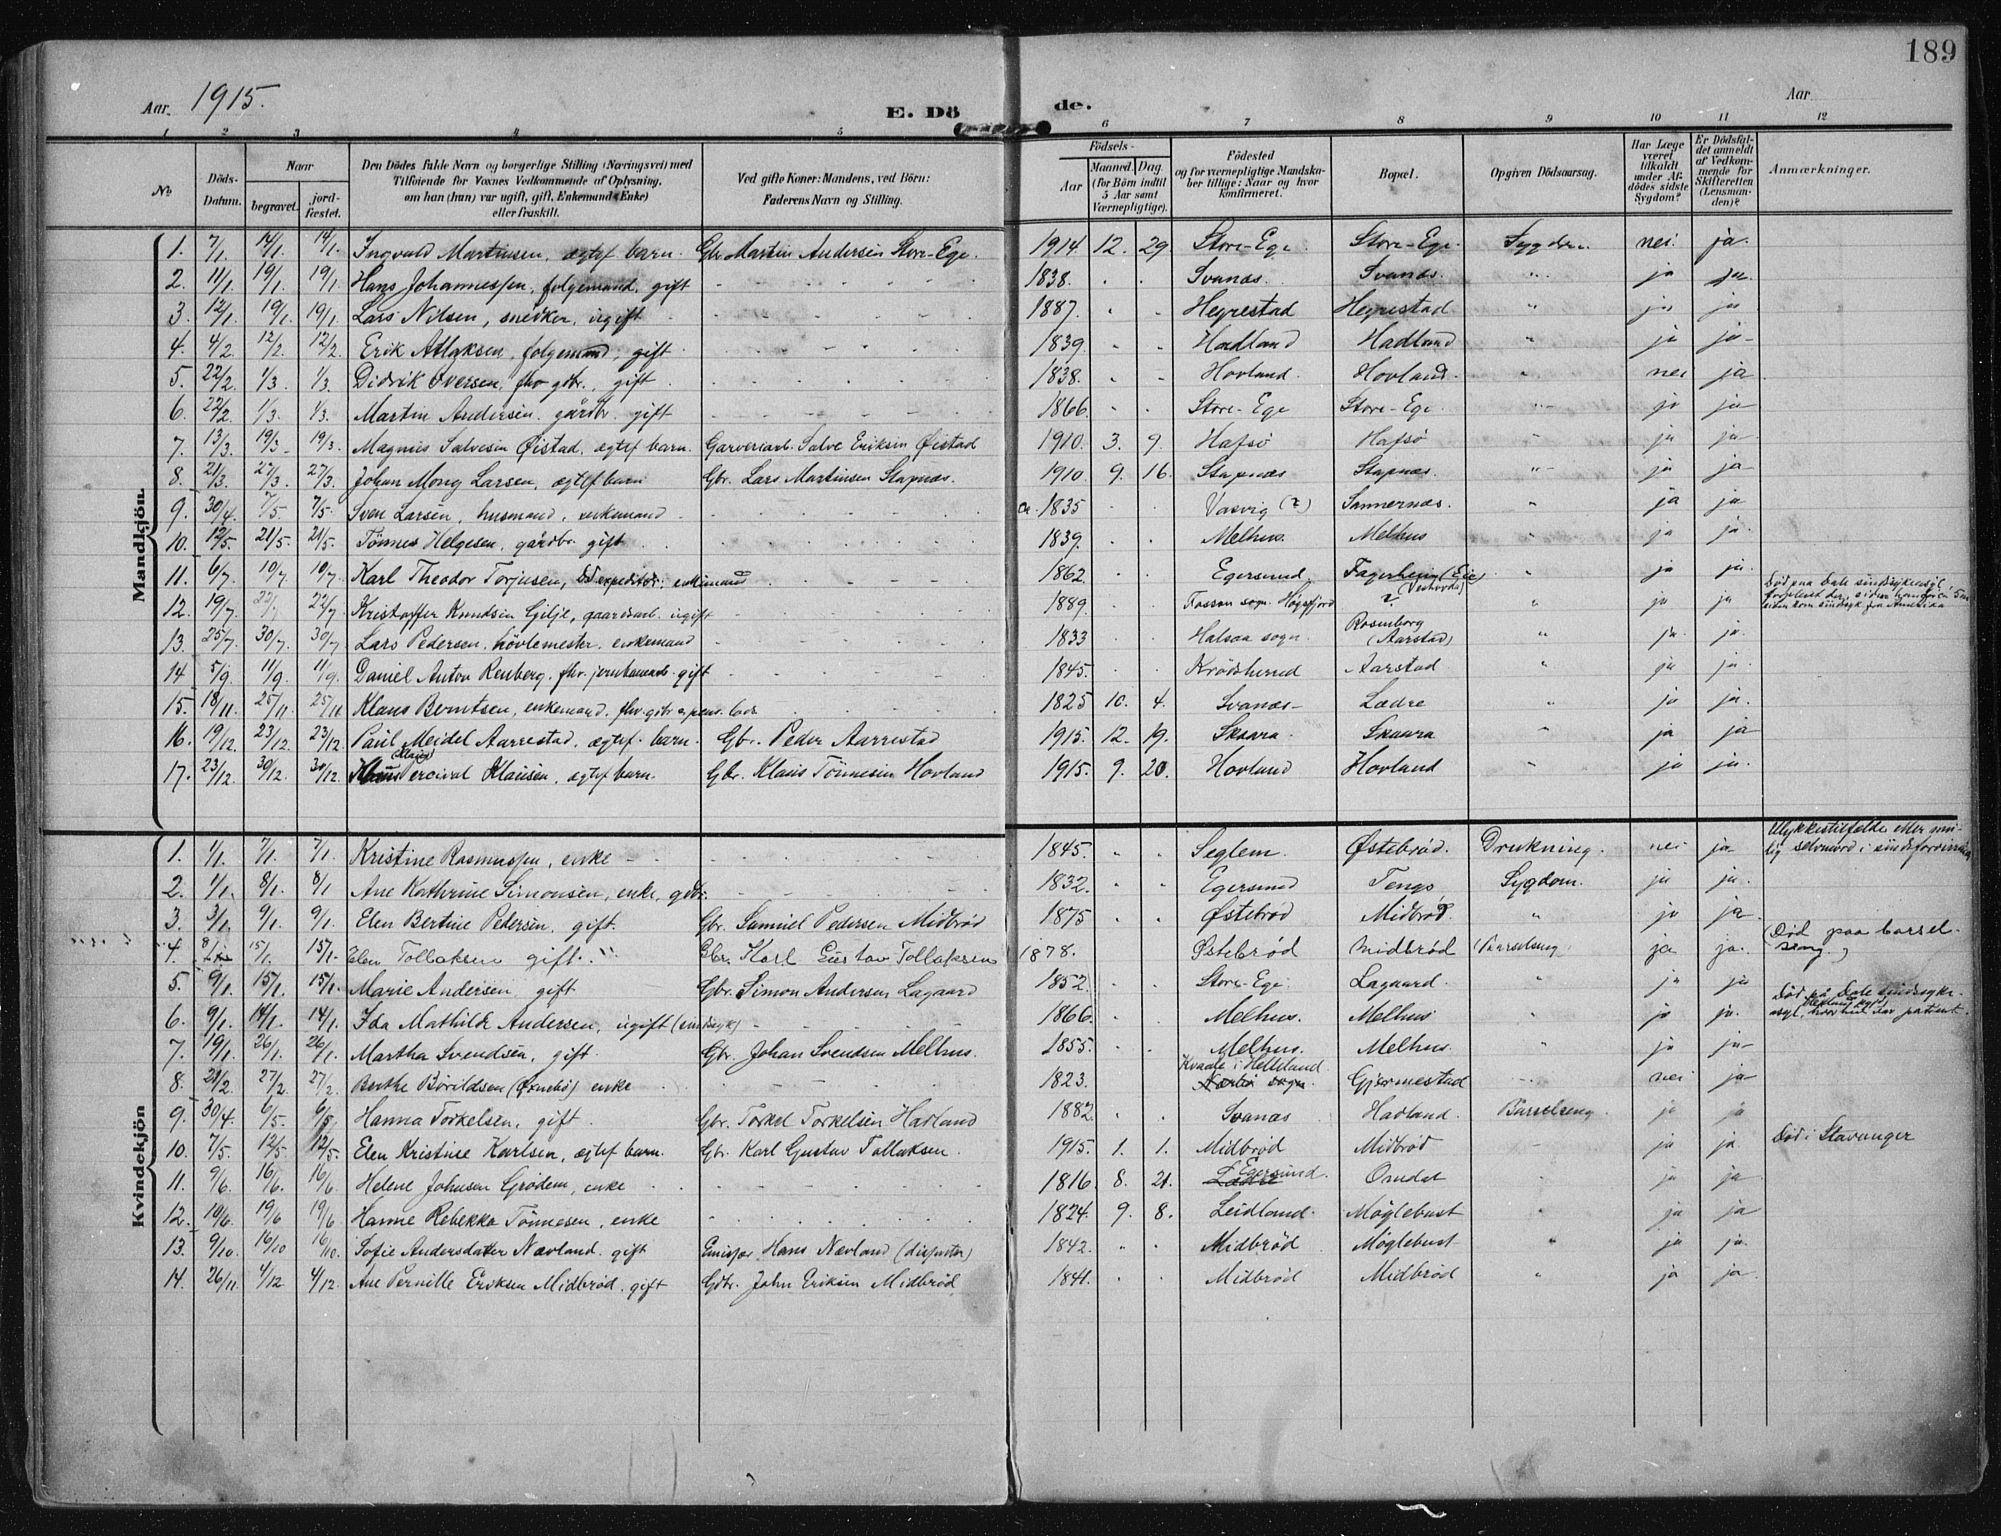 189
Aar. 1915.
E. Döde.
Aar
1 2 3 4 5 6 7 8 9 10 11 12
No
Döds-Datum.
Naar
begravet.
jord-fæstet.
Den Dödes fulde Navn og borgerlige Stilling (Næringsvei) med
Tilföiende for Voxnes Vedkommende af Oplysning,
om han (hun) var ugift, gift, Enkemand (Enke)
eller fraskilt.
Ved gifte Koner: Mandens, ved Börn:
Faderens Navn og Stilling.
Födsels-
Aar
Maaned. Dag.
(for Börn indtil
5 Aar samt
Værnepligtige).
Födested
og for værnepligtige Mandska-
ber tillige: Naar og hvor
konfirmeret.
Bopæl.
Opgiven Dödsaarsag.
Har Læge
været
tilkaldt
under Af-
dödes sidste
Sygdom?
Er Dödsfal-
det anmeldt
af Vedkom-
mende for
Skifteretten
(Lensman-
den)?
Anmærkninger.
Mandkjön.
1. 7/1 14/1. 14/1. Ingvald Martinsen, ægtef barn. Gbr Martin Andersen Store-Ege. 1914 12. 29 Store-Ege Store-Ege. Sygdom nei. ja.
2. 11/1 19/1. 19/1 Hans Johannessen, folgemand, gift 1838. Svanæs. Svanæs. " ja ja.
3. 12/1. 19/1. 19/1. Lars Nilsen, snedker, ugift 1887. Hegrestad Hegrestad " ja ja
4. 4/2. 12/2. 12/2. Erik Atlaksen, folgemand, gift 1839. Hadland Hadland " ja ja
5. 22/2. 1/3. 1/3. Didrik Iversen, fhv gbr., gift 1838. Hovland. Hovland. " nei ja
6. 22/2. 1/3. 1/3. Martin Andersen. gårdbr. gift 1866. Store-Ege Store-Ege. " ja ja
7. 13/3. 19/3 19/3. Magnus Salvesen Øistad, ægtef barn. Garveriarb. Salve Eriksen Øistad 1910. 3. 9. Hafsö Hafsö " ja ja
8. 21/3. 27/3. 27/3. Johan Mong Larsen, ægtef barn Gbr. Lars Martinsen Stapnæs. 1910 9. 16. Stapnæs Stapnæs. " ja ja
9. 30/4. 7/5 7/5. Sven Larsen, husmand, enkemand ca. 1835 Vasvig (?) Sannernæs. " ja ja
10. 12/5. 21/5. 21/5. Tönnes Helgesen, gårdbr. gift 1839. Melhus. Melhus " ja ja.
11. 6/7. 10/7. 10/7. Karl Theodor Torjusen, expeditör, enkemand 1862. Egersund Fagerheim (Eie) " ja ja
12. 19/7. 22/7 22/7. Kristoffer Knudsen Gilje, gaardsarb. ugift 1889. Fossan sogn. Högsfjord ? " ja ja Död paa Dale sindssykeasyl,
13. 25/7. 30/7. 30/7. Lars Pedersen, hövlemester, enkemand 1833 Halsaa sogn. Rosenborg (Aarstad) " ja ja.
14 5/9. 11/9. 11/9. Daniel Anton Renberg. fhv. gift 1845. Krödsherred Aarstad " ja ja.
15. 18/11. 25/11. 25/11 Klaus Berntsen, enkemand, fhv. gbr 1825 10. 4. Svanæs Lædre " ja ja.
16. 19/12. 23/12. 23/12. Paul Meidel Aarrestad, ægtef. barn. Gbr. Peder Aarrestad 1915. 12. 19. Skaara Skaara ja ja
17. 23/12. 30/12. 30/12. Percival Klausen, ægtef barn. Gbr. Klaus Tönnesen Hovland 1915. 9. 20. Hovland Hovland ja ja.
Kvindekjön
1. 1/1. 7/1. 7/1. Kristine Rasmussen, enke 1845. Seglem. Østebröd. Drukning. nei ja Ulykkestilfælde eller mu-
lig selvmord i sindsforvirring
2. 1/1. 8/1. 8/1 Ane Kathrine Simonsen, enke, gbr. 1832. Egersund Tengs Sygdom. ja ja.
3. 3/1. 9/1. 9/1. Elen Bertine Pedersen, gift. Gbr. Samuel Pedersen Midbröd 1875 Østebröd Midbröd " ja ja
4. 8/1 15/1. 15/1. Elen Tollaksen gift. Gbr. Karl Gustav Tollaksen 1878. Østebröd Midbröd (Barselseng) ja ja. (Död paa barsel-
seng.)
5. 9/1. 15/1. 15/1. Marie Andersen gift Gbr. Simon Andersen Lagaard 1852. Store-Ege Lagaard. " ja ja
6. 9/1. 14/1. 14/1. Ida Mathilde Andersen, ugift (sindssyk) 1866. Melhus. Melhus " ja ja. Död på Dale sindssyke-
asyl, hvor hun var patient.
7. 19/1. 26/1. 26/1. Martha Svendsen, gift. Gbr. Johan Svendsen Melhus. 1855. Melhus. Melhus. " ja ja
8. 21/2. 27/2. 27/2. Berthe Börildsen (Øxnebö) enke 1823. Kvaale i Helleland Gjermestad nei ja
9. 30/4. 6/5. 6/5. Hanna Torkelsen, gift. Gbr. Torkel Torkelsen Hadland 1882 Svanæs Hadland. Barselseng. ja ja
10. 7/5. 12/5. 12/5. Elen Kristine Karlsen, ægtef barn. Gbr. Karl Gustav Tollaksen. 1915. 1. 1. Midbröd Midbröd ja ja. Död i Stavanger
11. 9/6. 16/6. 16/6. Helene Johnsen Grödem, enke 1816. 8. 21. Egersund. Omdal " ja ja
12. 10/6. 19/6 19/6. Hanne Rebekka Tönnesen, enke 1824. 9. 8. Leidland. Möglebust " ja ja
13. 9/10. 16/10 16/10. Sofie Andersdatter Nævland, gift Emissær Hans Nævland 1842. Midbröd Möglebust " ja ja.
14. 26/11. 4/12 4/12. Ane Pernille Eriksen Midbröd, gift Gbr. John Eriksen Midbröd 1841. Midbröd Midbröd " ja ja